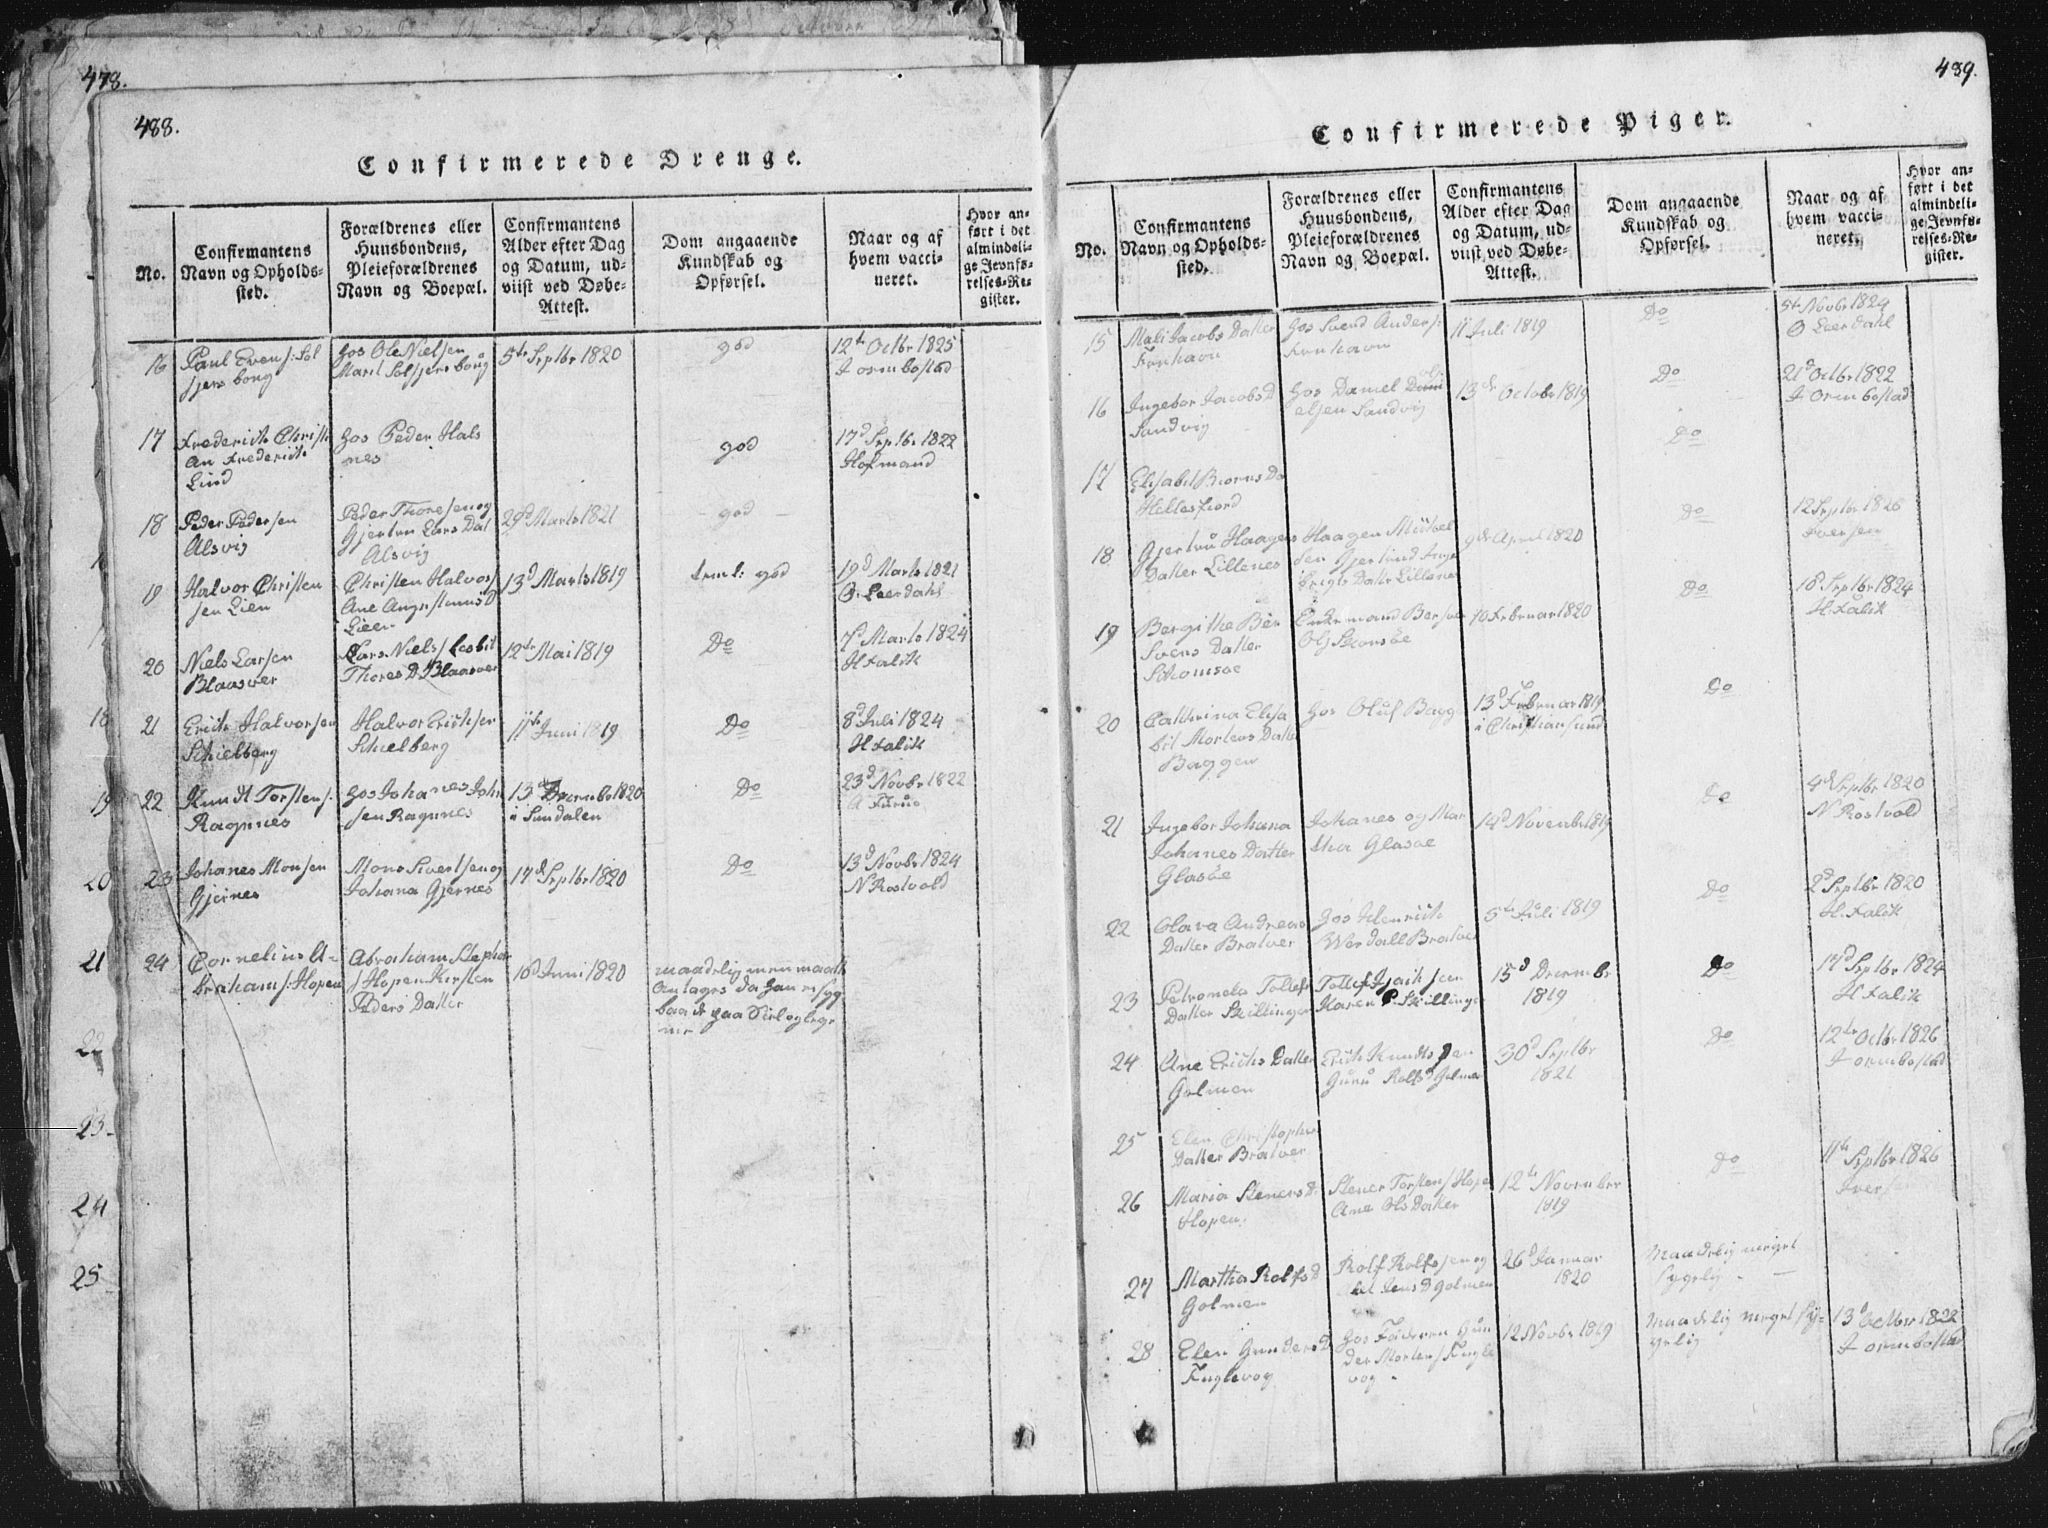 478.
488.
Confirmerede Drenge.
No.
Confirmantens
Navn og Opholds-
sted.
Forældrenes eller
Huusbondens,
Pleieforældrenes
Navn og Boepæl.
Confirmantens
Alder efter Dag
og Datum, ud-
viist ved Døbe-
Attest.
Dom angaaende
Kundskab og
Opførsel.
Naar og af
hvem vacci-
neret.
Hvor an-
ført i det
almindeli-
ge Jevnfø-
relses-Re-
gister.
16
Paul Evens: Sol
sjers bong
hos Ole Nielsen
5te Septbr 1820
god
12te Octbr 1825
J ormbostad
17
Frederich Christi
an Frederich
Lind
hos Peder Hals
nes
god
17d Septbr 1822
Hofmand
18
Peder Pedersen
Alsvig
Peder Thoresen og
Gjertru Lars Dat
Alsvig
29d Marts 1821
god
19
Halvor Christen
sen Lien
Christen Halvors
Lien
13d Marts 1819
god
19d Marts 1821
O. Leerdahl
20
Niels Larsen
Blaasver
Lars Niels/
Thores D Blaasver
12te Mai 1819
Do
7d Marts 1824
H Falik
21
Erich Halvorsen
Schielberg
Halvor Erichsen
Schelberg
11te Juni 1819
Do
8d Juli 1824
H Falik
22
Knudt Torstens:
Ragnnes
hos Johanes Joha
sen Ragnnes
13d December 1820
i Sundalen
Do
23d Novbr 1822
A Furuo
23
Johanes Monsen
Gjernes
Mons Sivertsen og
Johana Gjernes
17d Septbr 1820
Do
13d Novbr 1824
N Rostvold
24
Cornelius A-
brahams: Hopen
Abraham Stephan
s Hopen Kirsten
Peders Datter
16d Juni 1820
maadelig men maatte
antages da han er syg
baade paa Siel og lege
me
18
19
20
21
22
23
24
25
489.
Confirmerede Piger.
No.
Confirmantens
Navn og Opholds-
sted.
Forældrenes eller
Huusbondens,
Pleieforældrenes
Navn og Boepæl.
Confirmantens
Alder efter Dag
og Datum, ud-
viist ved Døbe-
Attest.
Dom angaaende
Kundskab og
Opførsel.
Naar og af
hvem vacci-
neret.
Hvor an-
ført i det
almindeli-
ge Jevnfø-
relses-Re-
gister.
15
Mali Jacobs Datter
hos Svend Anders:
11 Juli 1819
Do
5te Novbr 1824
O Leerdahl
16
Ingebor Jacobs D
Sandvig
hos Daniel Dani
elsen Sandvig
13de October 1819
Do
21d Octbr 1822
J ormbostad
17
Elisabet Biorns Da
Hellesfiord
Do
18
Gjertru Haagens
Datter Lillenes
Haagen Mikkel
sen Gjertrud Inge
brigts Datter Lillenes
9de April 1820
Do
12 Septbr 1826
Iversen
19
Bergithe Ber
Svens Datter
Schomsøe
Enkemand Bersven
Ols Skomsøe
10 Februar 1820
Do
18 Septbr 1824
H. Falik
20
Cathrina Elisa
bet Mortens Datter
Baggen
hos Oluf Bagg
13d Februar 1819
i Christiansund
Do
21
Ingebor Johana
Johanes Datter
Glasøe
Johanes og Mar
tha Glasøe
14d Novembr 1819
Do
4de Septbr 1820
N Rostvold
22
Olava Andreas
Datter Bratver
hos Henrich
Werdall Bratver
5te Juli 1819
Do
2d Septbr 1820
H. Falik
23
Petronela Tollefs
Datter Skillinger
Tollef Isaihsen
Karen P. Skillinger
15d Decembr
1819
Do
17d Septbr 1824
H Falik
24
Ane Erichs Datter
Golmen
Erich Knudtsøen
Guru Rolfs D Golmen
30d Septbr
1821
Do
12te Octbr 1826
J ormbostad
25
Elen Christophers
Datter Bratver
26
Maria Steners D.
Hopen.
Stener Torstens Hopen
Ane Ols Datter
12te November
1819
Do
11te Septbr 1826
Ivers
27
Martha Rolfs D
Golmen
Rolf Rolfssen og
Jens D Golmen
26d Januar
1820
Maadelig meget
sygelig
28
Elen Gunders D
Fuglevog
hos Faderen Gun
der Mortens Fugle
vog
12 Novbr 1819
Maadelig meget sy-
gelig
13d Octbr 1822
J ormbostad